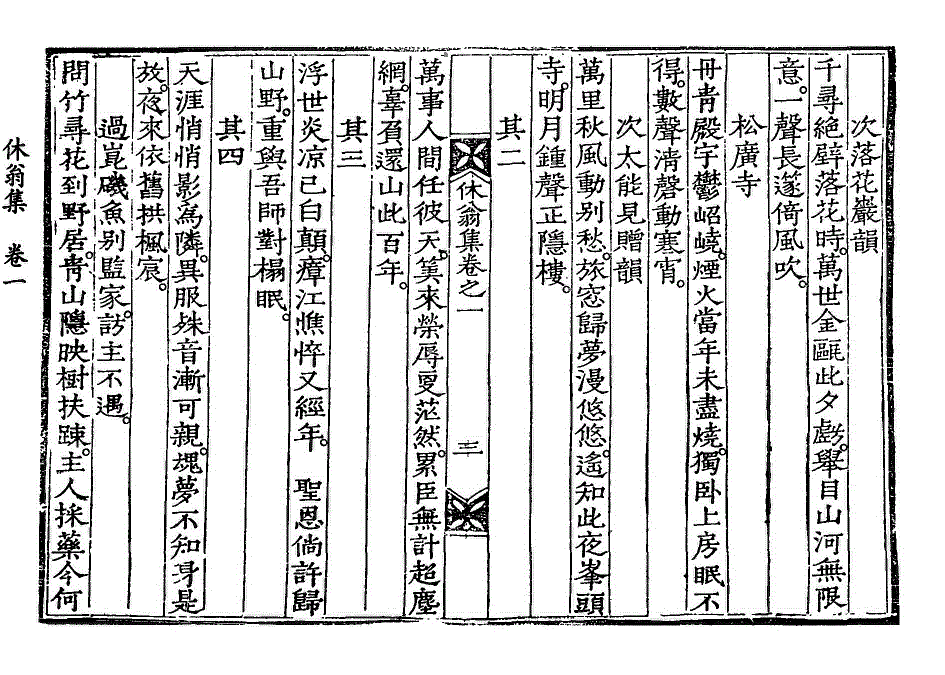 次落花巖韻
千尋絕壁落花時。萬世金甌此夕虧。擧目山河無限
意。一聲長邃倚風吹。
松廣寺
丹靑殿宇鬱岧嶢。煙火當年未盡燒。獨臥上房眠不
得。數聲淸磬動寒宵。
次太能見贈韻
萬里秋風動別愁。旅窓歸夢漫悠悠。遙知此夜峯頭
寺。明月鍾聲正隱樓。
其二
萬事人間任彼天。筭來榮辱更茫然。累臣無計超塵
網。辜負還山此百年。
其三
浮世炎凉已白顚。瘴江憔悴又經年。 聖恩倘許歸
山野。重與吾師對榻眠。
其四
天涯悄悄影爲隣。異服殊音漸可親。魂夢不知身是
放。夜來依舊拱楓宸。
過崑磯魚別監家。訪主不遇。
問竹尋花到野居。靑山隱映樹扶踈。主人採藥今何
休翁集卷之一
三
休翁集 卷一